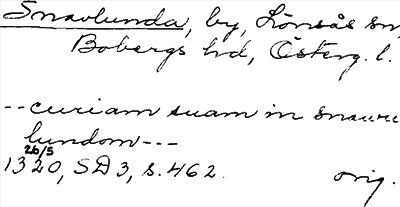 Snavlunda, by, Lönsås sn,
Bobergs hd, Österg. l.
--curiam suam in snauu
lundom---
26/5
1320, SD3, s. 462. orig.